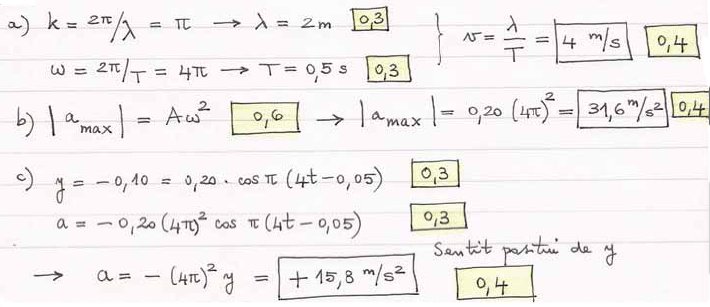 a) k = 2π/λ = π → λ = 2m 0,3
ω = 2π/T = 4π → T = 0,5 s 0,3
v = λ/T = 4 m/s 0,4
b) |a max| = Aω² 0,6 → |a max| = 0,20 (4π)² = 31,6 m/s² 0,4
c) y = -0,10 = 0,20 · cos π (4t - 0,05) 0,3
a = -0,20 (4π)² cos π (4t - 0,05) 0,3
Sentit positiu de y
→ a = - (4π)² y = + 15,8 m/s² 0,4